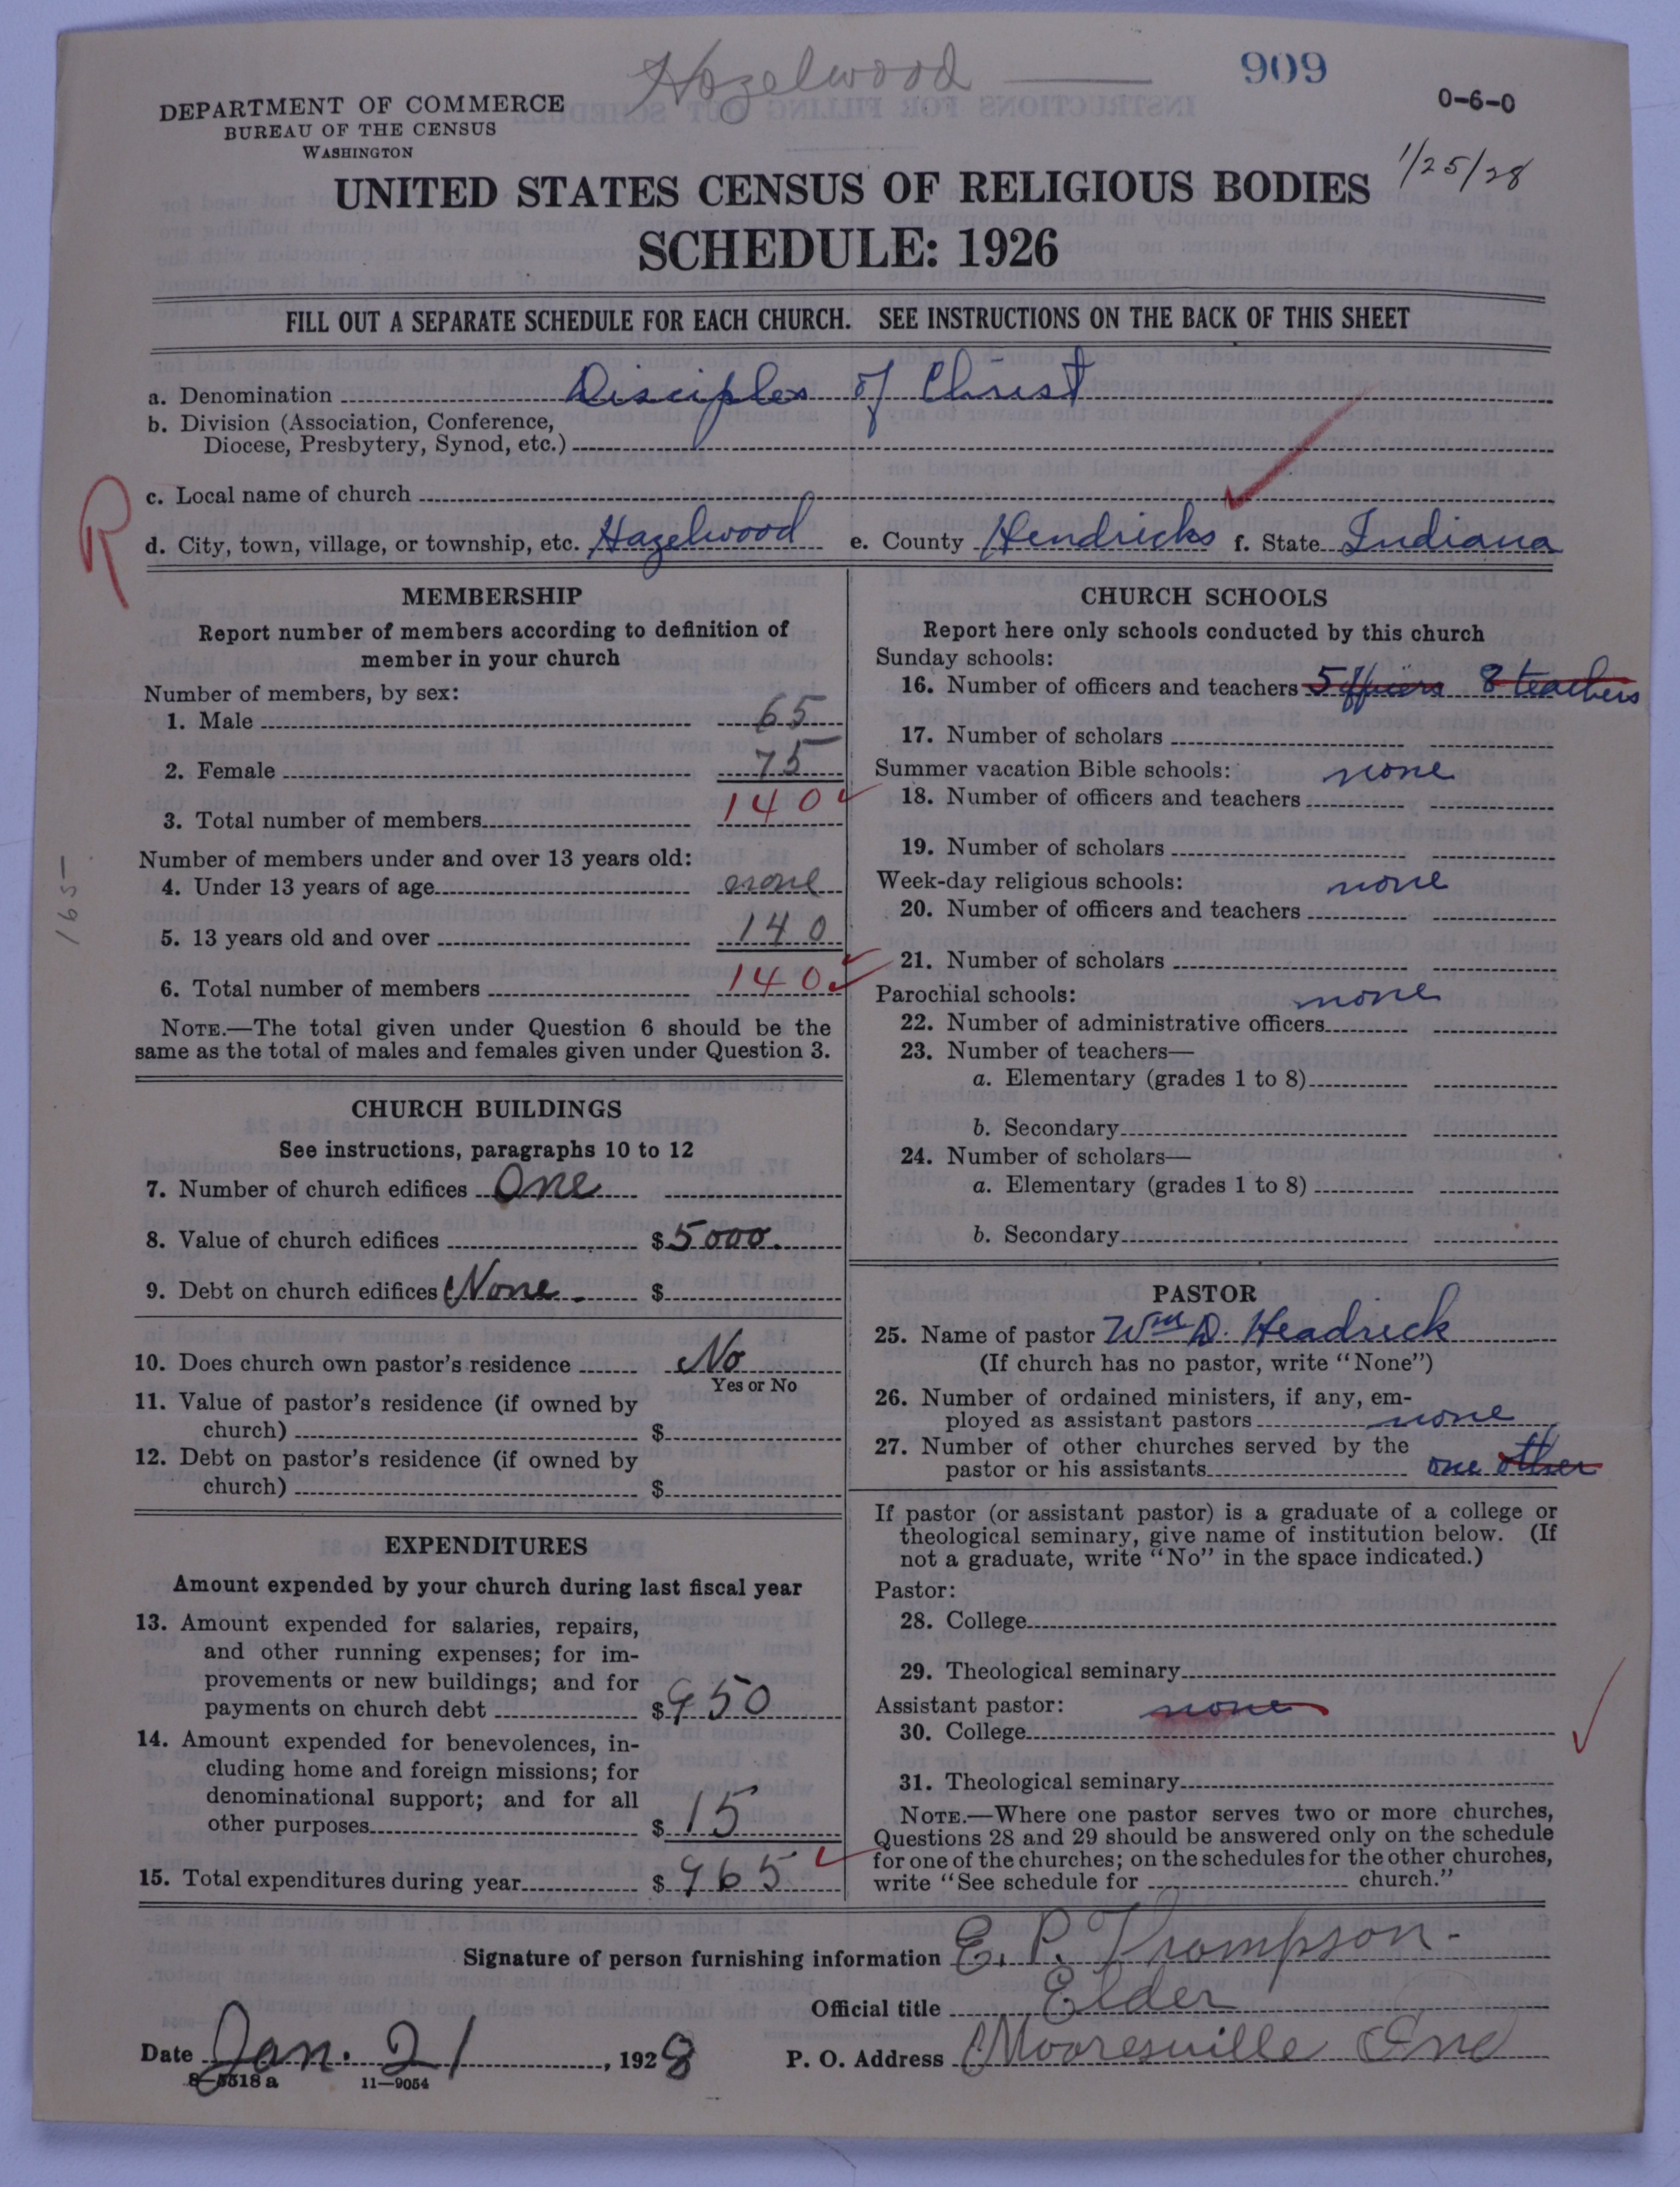 Hazelwood
909
DEPARTMENT OF COMMERCE
BUREAU OF THE CENSUS
WASHINGTON
0-6-0
1/25/28
UNITED STATES CENSUS OF RELIGIOUS BODIES
SCHEDULE: 1926
FILL OUT A SEPARATE SCHEDULE FOR EACH CHURCH. SEE INSTRUCTIONS ON THE BACK OF THIS SHEET
a. Denomination Disciples of Christ
b. Division (Association, Conference,
Diocese, Presbytery, Synod, etc.)
R
c. Local name of church
d. City, town, village, or township, etc. Hazelwood e. County Hendricks f. State Indiana
MEMBERSHIP
Report number of members according to definition of
member in your church
Number of members, by sex:
1. Male 65
2. Female 75
3. Total number of members 140
Number of members under and over 13 years old:
4. Under 13 years of age none
5. 13 years old and over 140
6. Total number of members 140
NOTE.—The total given under Question 6 should be the
same as the total of males and females given under Question 3.
165
CHURCH BUILDINGS
See instructions, paragraphs 10 to 12
7. Number of church edifices One
8. Value of church edifices $5000.
9. Debt on church edifices None. $
10. Does church own pastor's residence No
Yes or No
11. Value of pastor's residence (if owned by
church) $
12. Debt on pastor's residence (if owned by
church) $
EXPENDITURES
Amount expended by your church during last fiscal year
13. Amount expended for salaries, repairs,
and other running expenses; for im-
provements or new buildings; and for
payments on church debt $950
14. Amount expended for benevolences, in-
cluding home and foreign missions; for
denominational support; and for all
other purposes $15
15. Total expenditures during year $965
CHURCH SCHOOLS
Report here only schools conducted by this church
Sunday schools:
16. Number of officers and teachers 5 officers 8 teachers
17. Number of scholars
Summer vacation Bible schools: none
18. Number of officers and teachers
19. Number of scholars
Week-day religious schools: none
20. Number of officers and teachers
21. Number of scholars
Parochial schools: none
22. Number of administrative officers
23. Number of teachers—
a. Elementary (grades 1 to 8)
b. Secondary
24. Number of scholars—
a. Elementary (grades 1 to 8)
b. Secondary
PASTOR
25. Name of pastor Wm D. Headrick
(If church has no pastor, write "None")
26. Number of ordained ministers, if any, em-
ployed as assistant pastors none
27. Number of other churches served by the
pastor or his assistants one other
If pastor (or assistant pastor) is a graduate of a college or
theological seminary, give name of institution below. (If
not a graduate, write "No" in the space indicated.)
Pastor:
28. College
29. Theological seminary
Assistant pastor: none
30. College
31. Theological seminary
NOTE.—Where one pastor serves two or more churches,
Questions 28 and 29 should be answered only on the schedule
for one of the churches; on the schedules for the other churches,
write "See schedule for church."
Signature of person furnishing information E. P. Thompson
Official title Elder
Date Jan. 21, 1928 P. O. Address Mooresville Ind
8-5518 a 11—9054